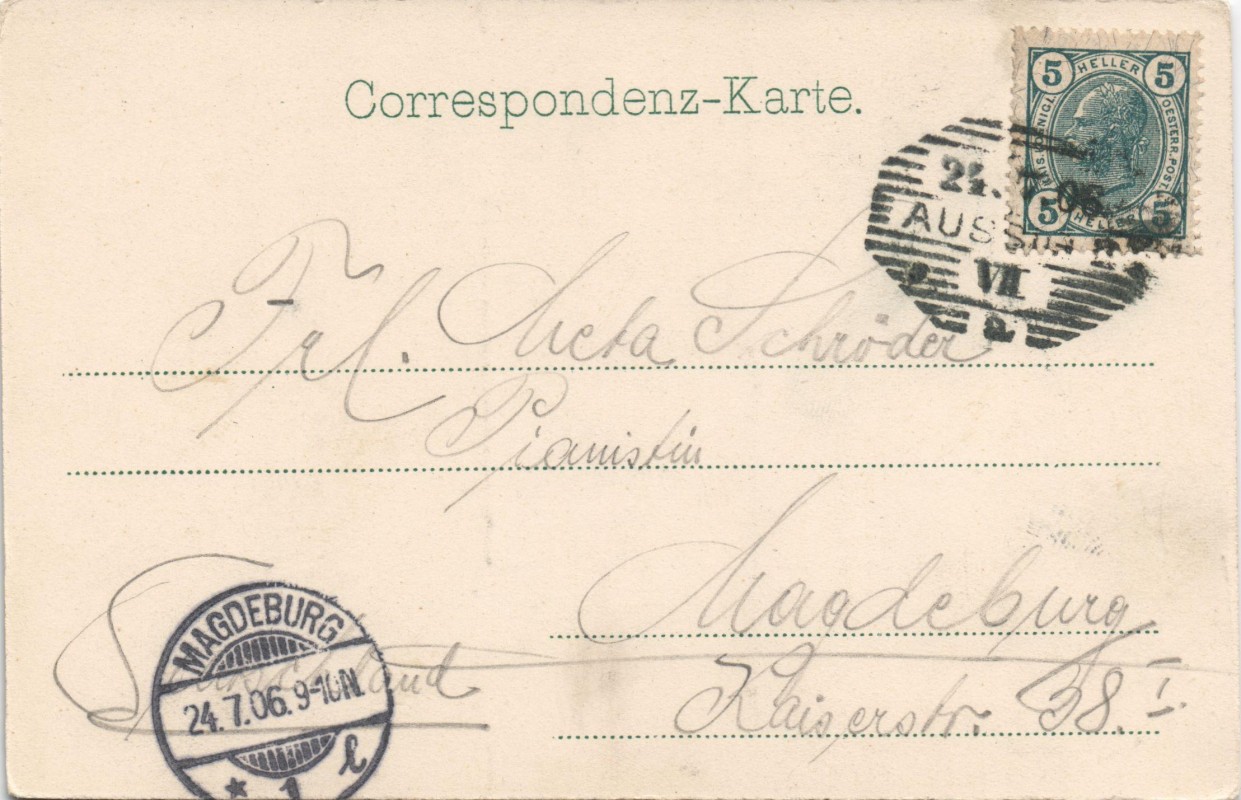 Correspondenz-Karte.
5 HELLER 5
KAIS. KOENIGL. OESTERR. POST
5 HELLER 5
24. 7 06
AUSSIG 2
VII
Frl. Meta Schröder
Pianistin
Magdeburg
Kaiserstr. 38. I.
Deutschland
MAGDEBURG
24.7.06. 9-10N.
* 1 l